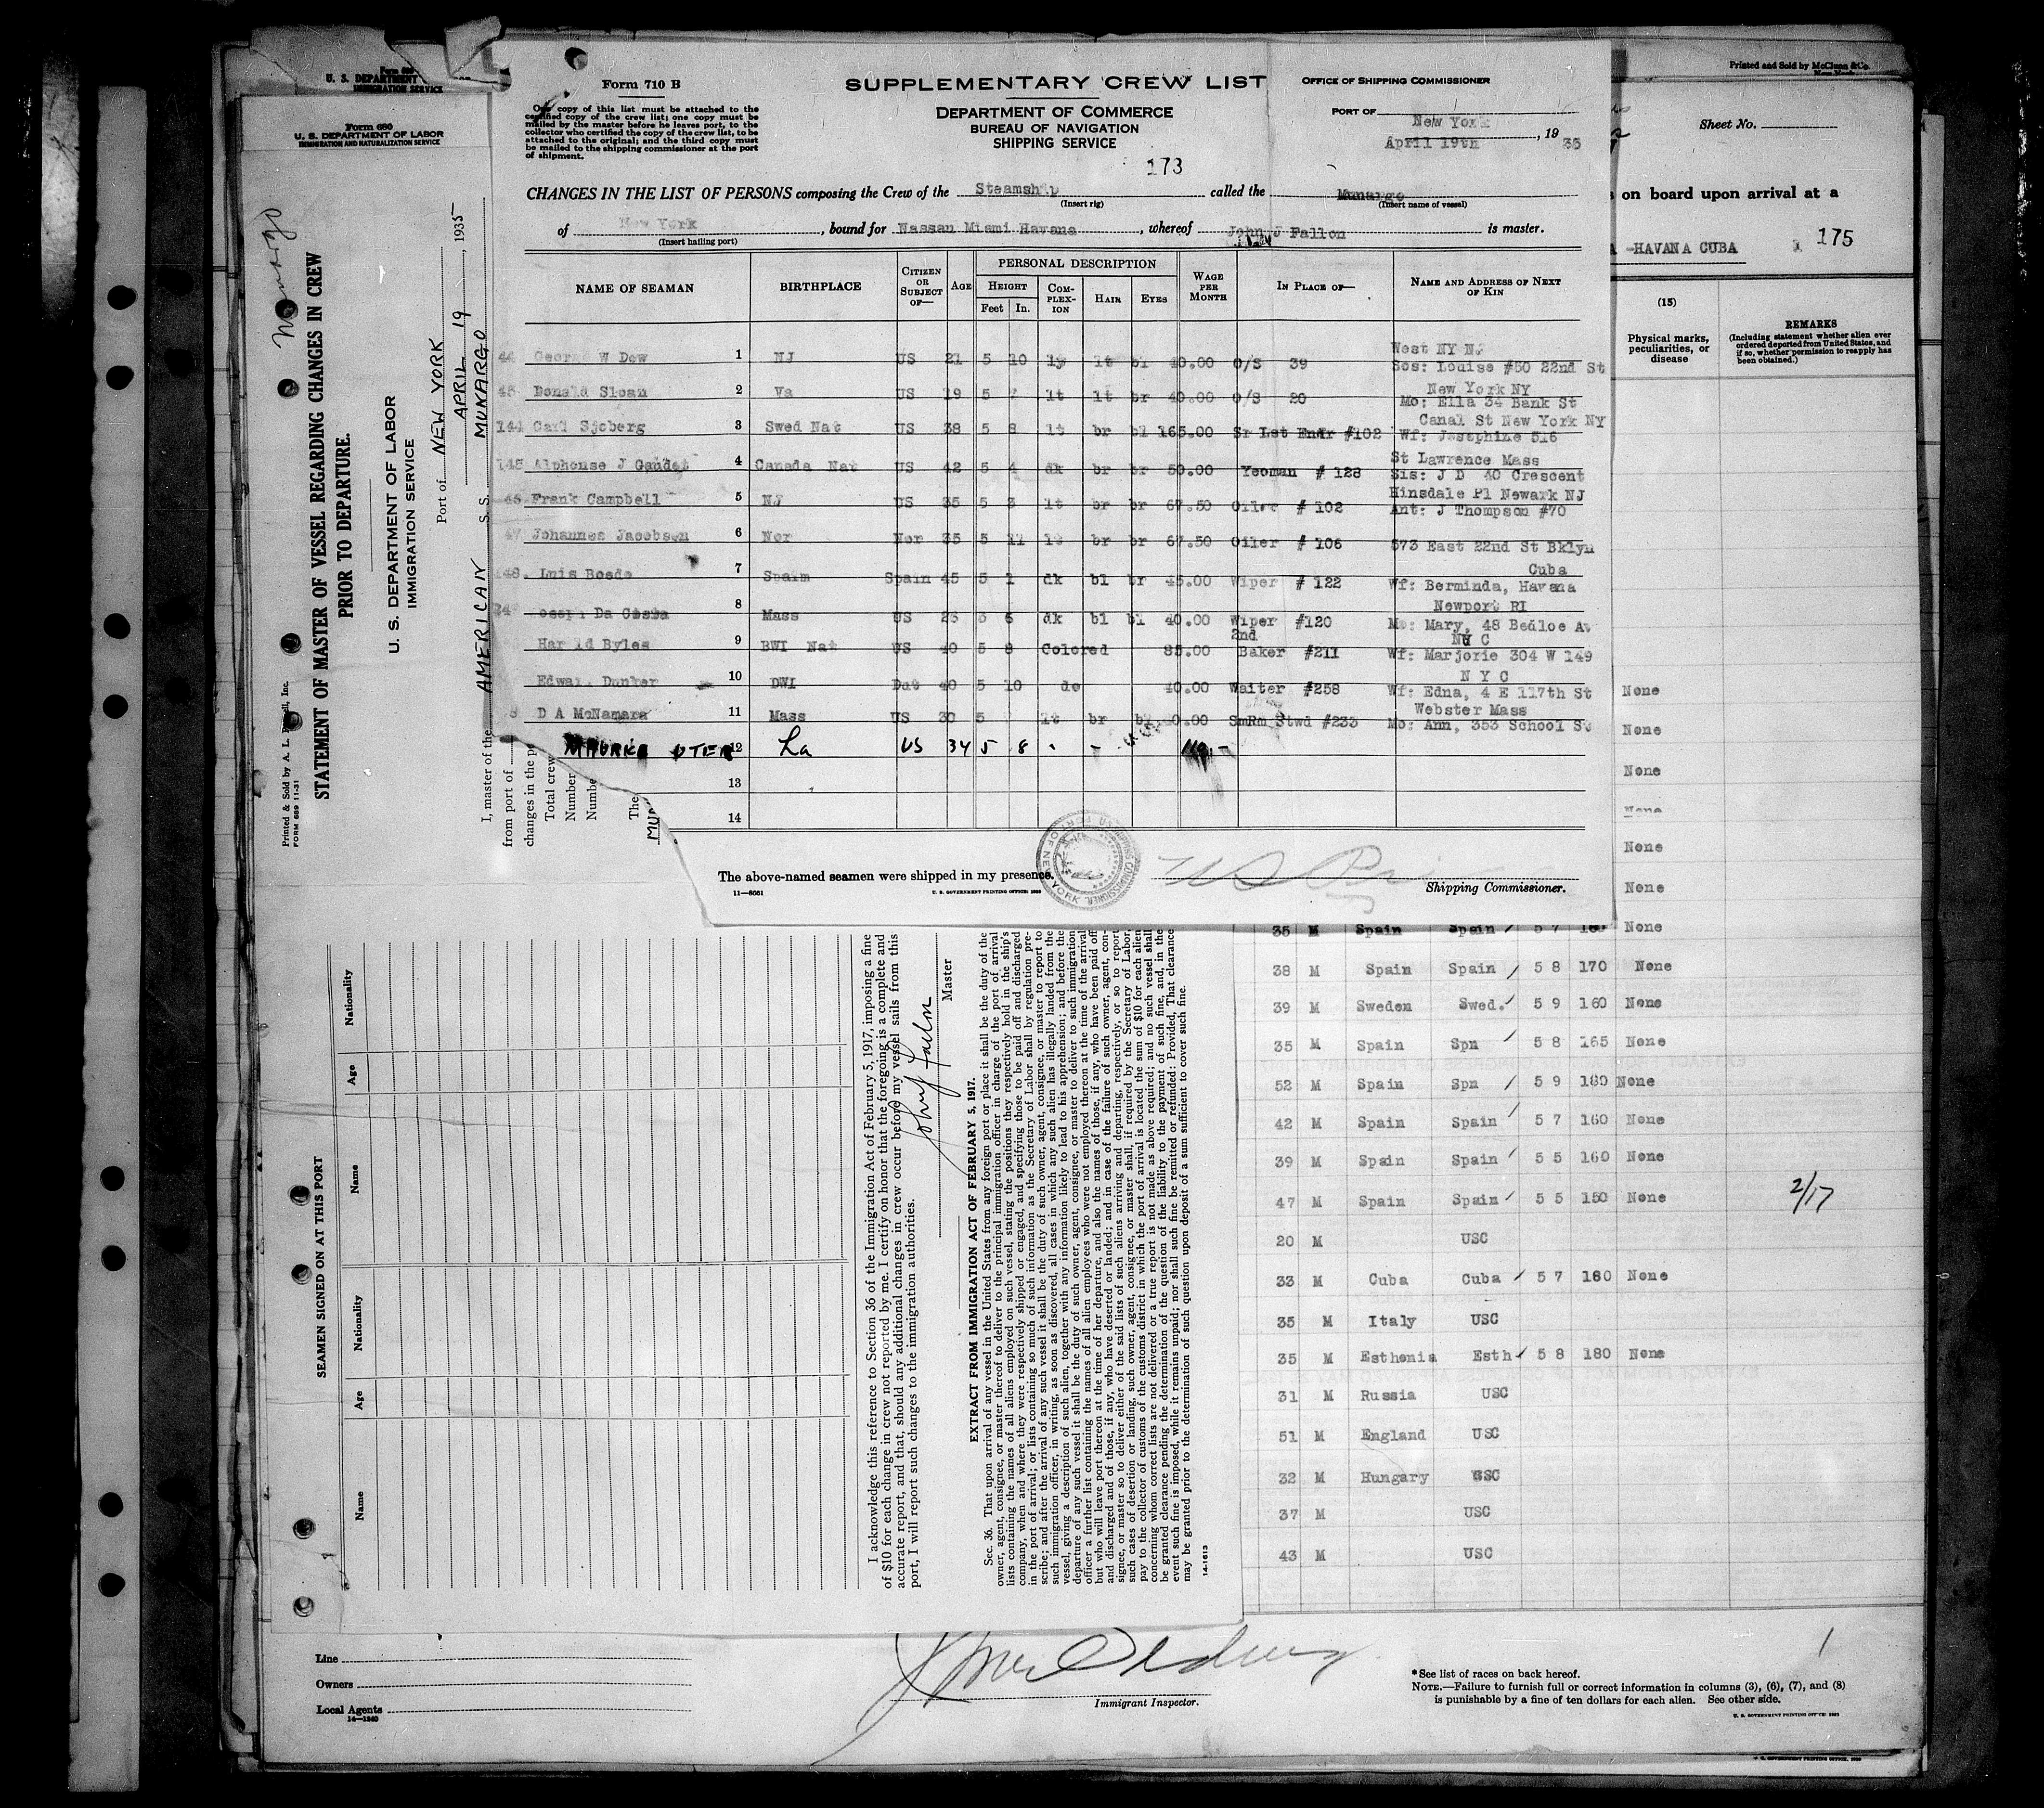 Form 710 B
One copy of this list must be attached to the
certified copy of the crew list; one copy must be
mailed by the master before he leaves port, to the
collector who certified the copy of the crew list, to be
attached to the original; and the third copy must
be mailed to the shipping commissioner at the port
of shipment.
SUPPLEMENTARY CREW LIST
DEPARTMENT OF COMMERCE
BUREAU OF NAVIGATION
SHIPPING SERVICE
173
OFFICE OF SHIPPING COMMISSIONER
PORT OF New York
April 19th, 1935
CHANGES IN THE LIST OF PERSONS composing the Crew of the Steamship called the Munargo
(Insert rig) (Insert name of vessel)
of New York, bound for Nassau Miami Havana, whereof John J Fallon is master.
(Insert hailing port)
NAME OF SEAMAN BIRTHPLACE CITIZEN OR SUBJECT OF— AGE PERSONAL DESCRIPTION HEIGHT Feet In. COM-PLEX-ION HAIR EYES WAGE PER MONTH IN PLACE OF— NAME AND ADDRESS OF NEXT OF KIN
West NY NJ
44 George W Dow 1 NJ US 21 5 10 lt bl 40.00 O/S 39 Louise #50 22nd St
New York NY
45 Donald Sloan 2 Va US 19 5 lt lt br 40.00 O/S 20 Mo: Ella 34 Bank St
Canal St New York NY
144 Carl Sjoberg 3 Swed Nat US 38 5 8 lt br bl 165.00 Sr 1st Endr #102 Wf: Josephine 516
St Lawrence Mass
145 Alphonse J Gaudet 4 Canada Nat US 42 5 4 dk br br 50.00 Yeoman # 128 Sis: J D 40 Crescent
Hinsdale Pl Newark NJ
46 Frank Campbell 5 NJ US 35 5 3 lt br br 67.50 Oiler # 102 Ant: J Thompson #70
47 Johannes Jacobsen 6 Nor Nor 35 5 11 lt br br 67.50 Oiler # 106 573 East 22nd St Bklyn
Cuba
148 Luis Boedo 7 Spain Spain 45 5 1 dk bl br 45.00 Wiper # 122 Wf: Berminda, Havana
Newport RI
Joseph Da Costa 8 Mass US 5 dk bl bl 40.00 Wiper #120 Mo: Mary, 48 Bedloe Av
N Y C
Harold Byles 9 BWI Nat US 40 5 8 Colored 85.00 2nd Baker #211 Wf: Marjorie 304 W 149
N Y C
Edward Dunker 10 DWI 40 5 10 do 40.00 Waiter #258 Wf: Edna, 4 E 117th St
Webster Mass
D A McNamara 11 Mass US 30 5 lt br SmRm Stwd #233 Mo: Ann, 353 School St
MAURICE UTER 12 La US 34 5 8
13
14
The above-named seamen were shipped in my presence.
Shipping Commissioner.
11—8651 U. S. GOVERNMENT PRINTING OFFICE
Form 689
U. S. DEPARTMENT
IMMIGRATION SERVICE
Form 680
U. S. DEPARTMENT OF LABOR
IMMIGRATION AND NATURALIZATION SERVICE
Munargo
Printed & Sold by A. L. Inc.
FORM 689 11-31
STATEMENT OF MASTER OF VESSEL REGARDING CHANGES IN CREW
PRIOR TO DEPARTURE.
U. S. DEPARTMENT OF LABOR
IMMIGRATION SERVICE
Port of NEW YORK
APRIL 19, 1935
I, master of the AMERICAN S. S. MUNARGO
from port of
changes in the
Total crew
Number
Number
The
SEAMEN SIGNED ON AT THIS PORT
Name Age Nationality Name Age Nationality
I acknowledge this reference to Section 36 of the Immigration Act of February 5, 1917, imposing a fine
of $10 for each change in crew not reported by me. I certify on honor that the foregoing is a complete and
accurate report, and that, should any additional changes in crew occur before my vessel sails from this
port, I will report such changes to the immigration authorities.
John J Fallon
Master
EXTRACT FROM IMMIGRATION ACT OF FEBRUARY 5, 1917.
Sec. 36. That upon arrival of any vessel in the United States from any foreign port or place it shall be the duty of the
owner, agent, consignee, or master thereof to deliver to the principal immigration officer in charge of the port of arrival
lists containing the names of all aliens employed on such vessel, stating the positions they respectively hold in the ship's
company, when and where they were respectively shipped or engaged, and specifying those to be paid off and discharged
in the port of arrival; or lists containing so much of such information as the Secretary of Labor shall by regulation pre-
scribe; and after the arrival of any such vessel it shall be the duty of such owner, agent, consignee, or master to report to
such immigration officer, in writing, as soon as discovered, all cases in which any such alien has illegally landed from the
vessel, giving a description of such alien, together with any information likely to lead to his apprehension; and before the
departure of any such vessel it shall be the duty of such owner, agent, consignee, or master to deliver to such immigration
officer a further list containing the names of all alien employees who were not employed thereon at the time of the arrival
but who will leave port thereon at the time of her departure, and also the names of those, if any, who have been paid off
and discharged and of those, if any, who have deserted or landed; and in case of the failure of such owner, agent, con-
signee, or master so to deliver either of the said lists of such aliens arriving and departing, respectively, or so to report
such cases of desertion or landing, such owner, agent, consignee, or master shall, if required by the Secretary of Labor,
pay to the collector of customs of the customs district in which the port of arrival is located the sum of $10 for each alien
concerning whom correct lists are not delivered or a true report is not made as above required; and no such vessel shall
be granted clearance pending the determination of the question of the liability to the payment of such fine, and, in the
event such fine is imposed, while it remains unpaid; nor shall such fine be remitted or refunded: Provided, That clearance
may be granted prior to the determination of such question upon deposit of a sum sufficient to cover such fine.
14-1613
Printed and Sold by McClunn & Co.
Sheet No.
on board upon arrival at a
-HAVANA CUBA
175
(15)
Physical marks, peculiarities, or disease
REMARKS
(Including statement whether alien ever
ordered deported from United States, and
if so, whether permission to reapply has
been obtained.)
None
None
None
None
None
None
35 M Spain Spain 5 7 160 None
38 M Spain Spain 5 8 170 None
39 M Sweden Swed. 5 9 160 None
35 M Spain Spn 5 8 165 None
52 M Spain Spn 5 9 180 None
42 M Spain Spain 5 7 160 None
39 M Spain Spain 5 5 160 None
47 M Spain Spain 5 5 150 None 2/17
20 M USC
33 M Cuba Cuba 5 7 180 None
35 M Italy USC
35 M Esthonia Esth 5 8 180 None
31 M Russia USC
51 M England USC
32 M Hungary USC
37 M USC
43 M USC
Line
Owners
Local Agents
14—1240
Immigrant Inspector.
1
*See list of races on back hereof.
NOTE.—Failure to furnish full or correct information in columns (3), (6), (7), and (8)
is punishable by a fine of ten dollars for each alien. See other side.